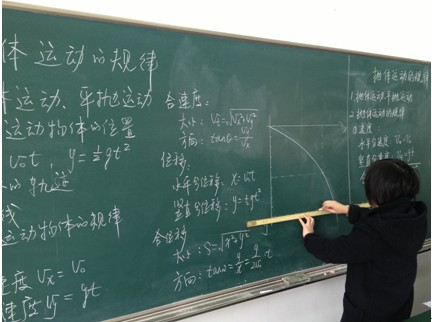 体运动的规律
运动、平抛运动
运动物体的位置
v₀t y=½gt²
的轨迹
线
运动物体的规律
速度 Vx = V₀
速度Vy = gt
合速度：
大小：V合=√Vx²+Vy²
方向：tanθ=Vy/Vx
位移：
水平分位移：x=v₀t
竖直分位移：y=½gt²
合位移
大小：S=√x²+y²
方向：tanα=y/x=g/2v₀ t
抛体运动的规律
1.抛体运动、平抛运动
2.抛体运动的规律
①速度
水平分速度：Vx=V₀
竖直分速度：Vy=gt